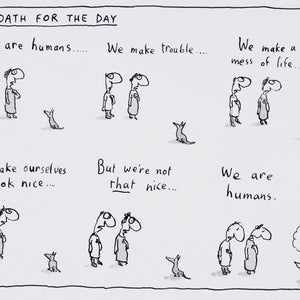 OATH FOR THE DAY
are humans.....
We make trouble....
We make a
mess of life...
ake ourselves
ok nice...
But we're not
that nice...
We are
humans.